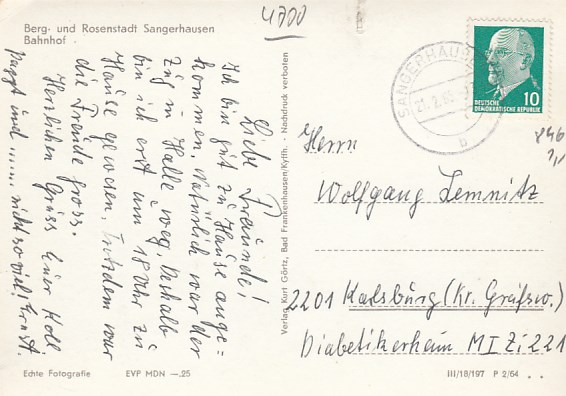 4700
Berg- und Rosenstadt Sangerhausen
Bahnhof
Liebe Freunde!
Ich bin gut zu Hause ange=
kommen. Natürlich war der
Zug in Halle weg. Deshalb
bin ich erst um 18 Uhr zu
Hause gewesen. Trotzdem war
die Freude gross.
Herzlichen Gruss Euer Kolli
Pappt und nicht so viel! Ernst.
Verlag Kurt Görtz, Bad Frankenhausen/Kyffh. · Nachdruck verboten
SANGERHAUSEN
b
DEUTSCHE
DEMOKRATISCHE REPUBLIK
10
846
Herrn
Wolfgang Lemnitz
2201 Karlsburg (Kr. Greifsw.)
Diabetikerheim M I Zi 221
Echte Fotografie EVP MDN —.25
III/18/197 P 2/64